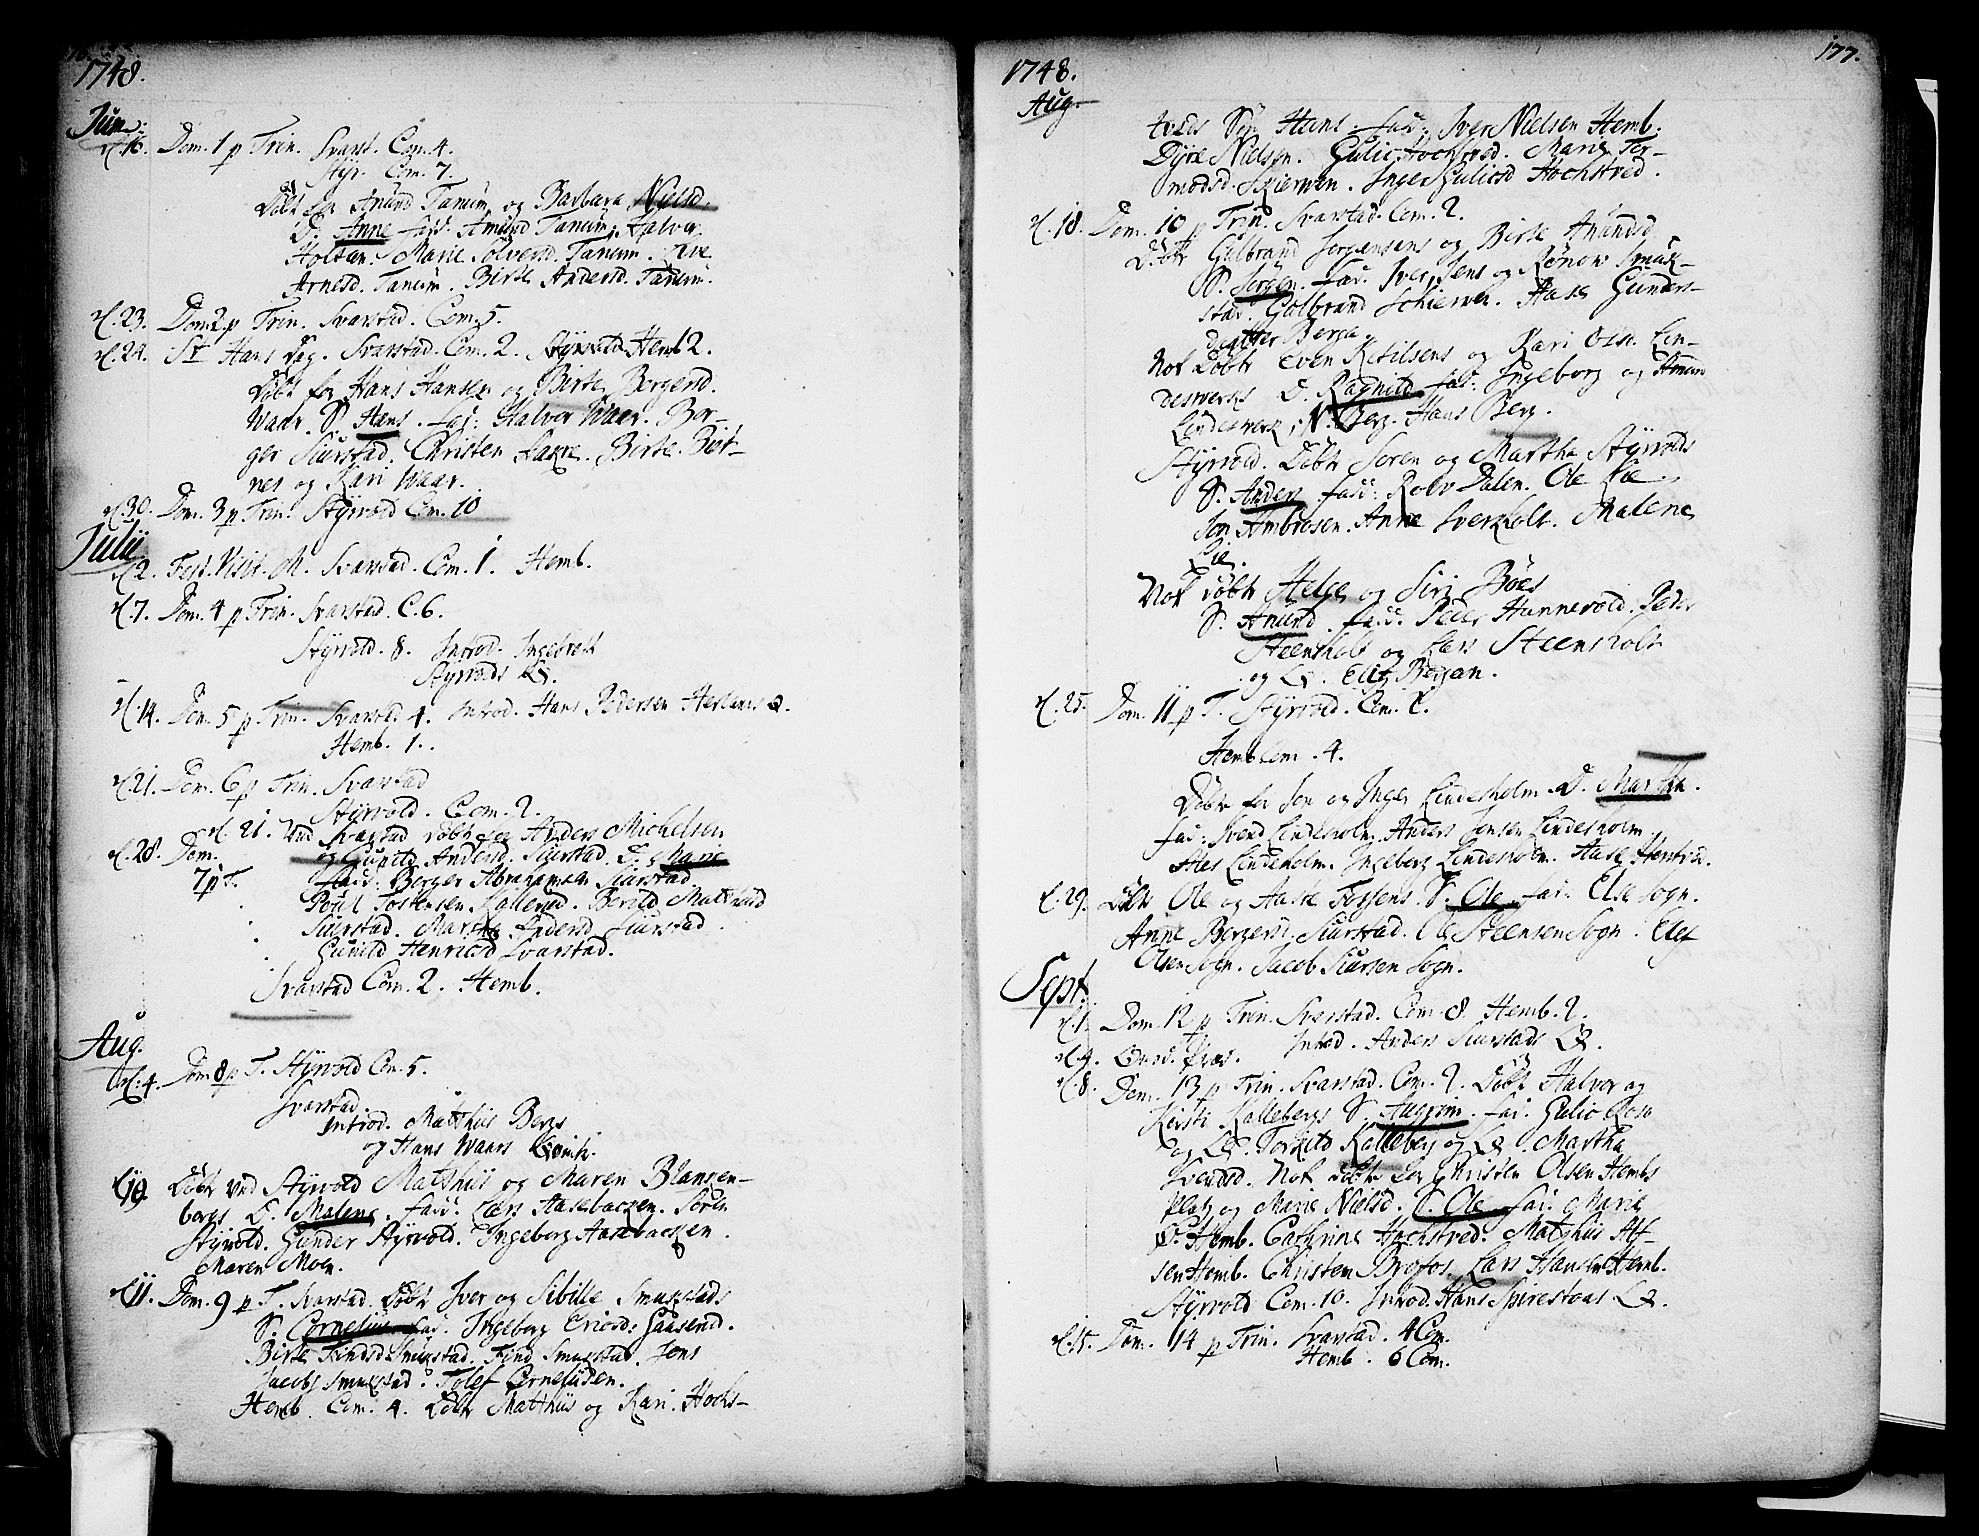 1748.
Jun.
d. 16. Dom. 1 p Trin. Svarst. Com. 4.
Styr. Com. 7.
Døbt for Anund Tanum og Barbara Nielsd.
D. Anne fad: Amund Tanum, Halvor
Holtan. Marie Solversd. Tanum.
Arnesd. Tanum. Birte Andersd. Tanum.
d. 23. Dom. 2 p Trin. Svarstad. Com. 5.
d. 24. St Hans Dag. Svarstad. Com. 2. Styrvold Hemb 2.
Døbt for Hans Hansen og Birte Borgersd.
Waar. S. Hans. fad: Halvor Waar. Bor-
ger Siurstad. Christen Birte Biør-
nes og Kari Waar.
d. 30. Dom. 3 p Trin. Styrvold Com. 10
Julii
d. 2. Fest. Visit. M. Svarstad. Com. 1. Hemb.
d. 7. Dom. 4 p Trin. Svarstad. C. 6.
Styrvold. 8. Introd. Ingebrett
Styrvolds Q.
d. 14. Dom. 5 p Trin. Svarstad 4. Introd. Hans Pedersen Q.
Hemb. 1.
d. 21. Dom. 6 p Trin. Svarstad
Styrvold. Com. 2.
d. 21. Ved Svarstad døbt for Anders Michelsen
d. 28. Dom. og Gunild Andersd. Siurstad. D. Marie
7 p T. fad: Borger Abrahamsen Siurstad
Poul Tostensen Kallerud. Berild
Siurstad. Martha Andersd Siurstad.
Gunild Henricsd Svarstad.
Svarstad Com. 2. Hemb.
Aug.
d. 4. Dom 8 p T. Styrvold Com. 5.
Svarstad.
Introd. Matthiis Bergs
og Hans Waars
d. 10 Døbt ved Styrvold Matthiis og Maren Blansen-
bergs D. Malene. fad: Lars Aasebachen. Søren
Styrvold. Gunder Styrvold. Ingeborg Aasebachen.
Maren Moen.
d. 11. Dom. 9 p T. Svarstad. Døbt Iver og Sibille Smukstads
S. Cornelius fad. Ingeborg Ericsd: Gaaserud.
Birte Findsd Smukstad. Find Smukstad. Jens
Jacobs Smukstad. Tolef Corneliusen.
Hemb. Com. 4. Døbt Matthiis og Kari. Hochs-
177.
1748.
Aug.
tveds Søn Hans. fad: Iver Nielsen Hemb.
Dyre Nielsen. Gulic Hochstved. Marie Tor-
modsd. Skierven. Inger Gulicsd Hochstved.
d. 18. Dom. 10 p Trin. Svarstad. Com. 2.
Døbt Gulbrand Jorgensens og Birte Anundsd.
S. Jorgen. fad: Iver Jens og Rønov Smuk-
stad. Gulbrand Schierven. Aase Gunders-
datter Berga.
Nok døbt Even Ketilsens og Kari Olsd. Lin-
desverks D. Ragnild fad: Ingeborg og Amun
Lindesverk, N. Berg. Hans Berg.
Styrvold. Døbt Søren og Martha Styrvolds
S. Anders. fad: Rolv Dalen. Ole Lie.
Jon Ambrosen. Anne Sverkholt. Malene
Lie.
Nok døbt Helge og Siri Bøes
S. Anund. fad: Peder Hannevold. Peder
Steensholt og Lars Steensholt
og Q. Elis Bergan.
d. 25. Dom. 11 p T. Styrvold. Com. 2.
Hemb Com. 4.
Døbt for Jon og Inger Lindesholm. D. Martha.
fad: Svend Lindesholm. Anders Jonsen Lindesholm.
Lindesholm. Ingeborg Lindesholm. Aase Henricsd.
d. 29. Døbt Ole og Aaste Fossens. S. Ole. fad: Else Sogn.
Anne Borgersd. Siurstad. Ole Steensen Sogn. Elef
Olsen Sogn. Jacob Siursen Sogn.
Sept
d. 1. Dom. 12 p Trin. Svarstad. Com. 8 Hemb. 2.
Introd. Anders Siurstads Q.
d. 4.
d. 8. Dom. 13 p Trin. Svarstad. Com. 2. Døbt Halvor og
Kirsti Kallebergs S. Angrim. fad: Gulic
og Q. Torkild Kalleberg og Q. Martha
Svendsd. Nok døbt for Christen Olsen Hembs
Platz og Marie Nielsd. S. Ole fad: Marie
Hemb. Cathrine Hochstved. Matthiis Alf-
sen Hemb. Christen Brofos. Lars Hansen Hemb.
Styrvold Com. 10. Introd. Hans Q.
d. 15. Dom. 14 p Trin. Svarstad. 4 Com.
Hemb. 6 Com.